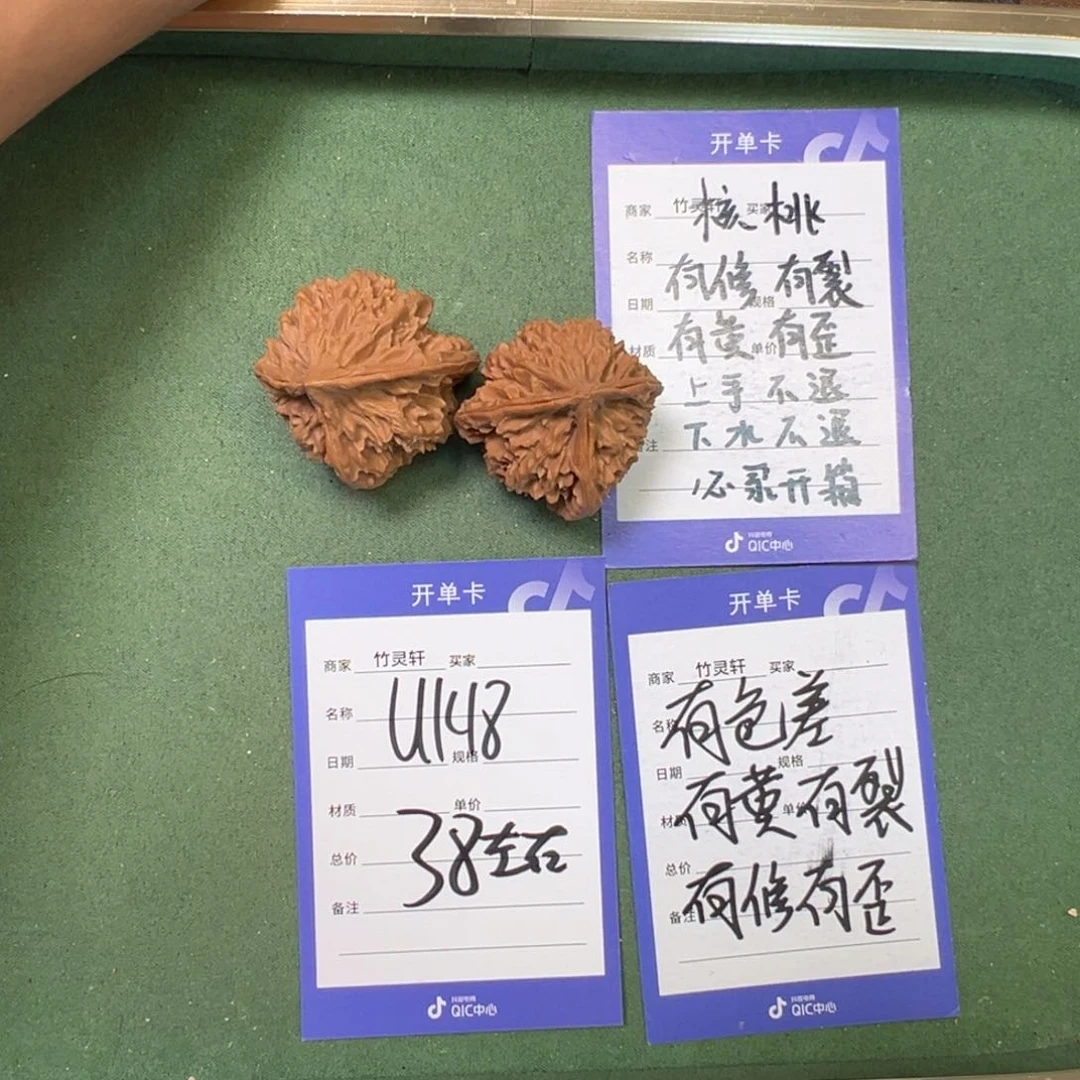 开单卡
商家 竹灵轩 买家
核桃
名称
有修 有裂
日期 规格
有黄 有歪
材质 单价
上手不退
下水不退
备注
必录开箱
抖音电商
QIC中心
开单卡
商家 竹灵轩 买家
名称
U148
日期 规格
材质 单价
总价 38左右
备注
抖音电商
QIC中心
开单卡
商家 竹灵轩 买家
名称 有色差
日期 规格
材质 单价
有黄有裂
总价
备注 有修有歪
抖音电商
QIC中心